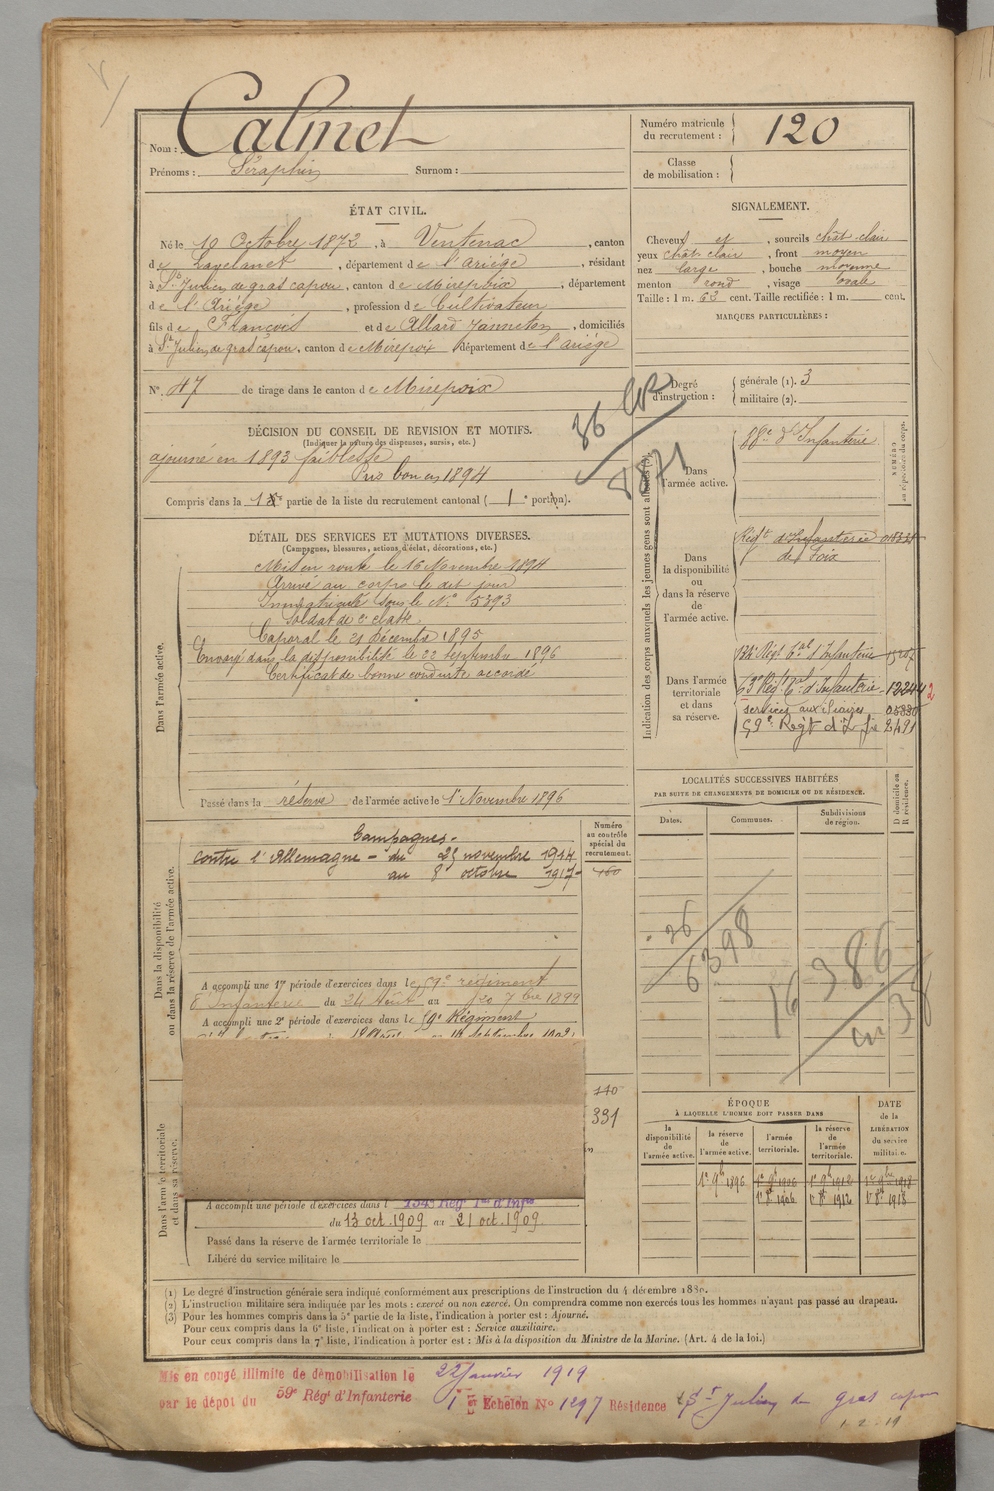 Nom : Calmet
Prénoms : Séraphin Surnom :
Numéro matricule du recrutement : 120
Classe de mobilisation :
ÉTAT CIVIL.
Né le 10 Octobre 1872, à Ventenac, canton
de Lavelanet, département de l'Ariège, résidant
à St Julien de gras capou, canton de Mirepoix, département
de l'Ariège, profession de Cultivateur
fils de François et de Allard Janneton, domiciliés
à St Julien de gras capou, canton de Mirepoix, département de l'ariège
No. 47 de tirage dans le canton de Mirepoix
SIGNALEMENT.
Cheveux et, sourcils chât-clair
yeux chât clair, front moyen
nez large, bouche moyenne
menton rond, visage ovale
Taille : 1 m. 63 cent. Taille rectifiée : 1 m. cent.
MARQUES PARTICULIÈRES :
Degré d'instruction : générale (1). 3
militaire (2).
DÉCISION DU CONSEIL DE REVISION ET MOTIFS.
(Indiquer la nature des dispenses, sursis, etc.)
ajourné en 1893 faiblesse
Pris bon en 1894
Compris dans la 1re partie de la liste du recrutement cantonal ( 1e portion).
36
8871
DÉTAIL DES SERVICES ET MUTATIONS DIVERSES.
(Campagnes, blessures, actions d'éclat, décorations, etc.)
Dans l'armée active.
Mis en route le 16 Novembre 1894
Arrivé au corps le dit jour
Immatriculé sous le No 5393
Soldat de 2e classe.
Caporal le 21 décembre 1895
Envoyé dans la disponibilité le 22 septembre 1896
Certificat de bonne conduite accordé
Passé dans la réserve de l'armée active le 1er Novembre 1896
Indication des corps auxquels les jeunes gens sont affectés (3).
NUMÉRO au répertoire du corps.
Dans l'armée active. 88e d'Infanterie
Dans la disponibilité ou dans la réserve de l'armée active.
Régt d'Infanterie
de Foix
Dans l'armée territoriale et dans sa réserve.
134e Régt Tal d'Infanterie
Régt Tal d'Infanterie 12244 2
services auxiliaires
59e Regt d'Ife 2491
LOCALITÉS SUCCESSIVES HABITÉES
PAR SUITE DE CHANGEMENTS DE DOMICILE OU DE RÉSIDENCE.
Dates. Communes. Subdivisions de région. D domicile ou R résidence.
Dans la disponibilité ou dans la réserve de l'armée active.
Numéro au contrôle spécial du recrutement.
160
Campagnes.
contre l'Allemagne - du 25 novembre 1914
au 8 octobre 1917-
26
6398
16
386
A accompli une 1re période d'exercices dans le 59e régiment
d'Infanterie du 24 Août au 20 7bre 1899
A accompli une 2e période d'exercices dans le 59e Régiment
110
331
Dans l'armée territoriale et dans sa réserve.
A accompli une période d'exercices dans l 134e Régt Tal d'Infie
du 13 oct. 1909 au 21 oct. 1909
Passé dans la réserve de l'armée territoriale le
Libéré du service militaire le
ÉPOQUE
À LAQUELLE L'HOMME DOIT PASSER DANS
la disponibilité de l'armée active. la réserve de l'armée active. l'armée territoriale. la réserve de l'armée territoriale.
DATE de la LIBÉRATION du service militaire.
1er 9bre 1896 1er 9bre 1906 1er 9bre 1912 1er 9bre 1918
1er 8bre 1906 1er 8bre 1912 1er 8bre 1918
(1) Le degré d'instruction générale sera indiqué conformément aux prescriptions de l'instruction du 4 décembre 1889.
(2) L'instruction militaire sera indiquée par les mots : exercé ou non exercé. On comprendra comme non exercés tous les hommes n'ayant pas passé au drapeau.
(3) Pour les hommes compris dans la 5e partie de la liste, l'indication à porter est : Ajourné.
Pour ceux compris dans la 6e liste, l'indication à porter est : Service auxiliaire.
Pour ceux compris dans la 7e liste, l'indication à porter est : Mis à la disposition du Ministre de la Marine. (Art. 4 de la loi.)
Mis en congé illimité de démobilisation le 22 Janvier 1919
par le dépôt du 59e Régt d'Infanterie 1er Echelon No 1297 Résidence St Julien de gras capou
1-2-19